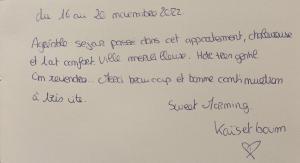 du 16 au 20 novembre 2022
Agréable sejour passé dans cet appartement, chaleureux
et tout confort ville merveilleuse. Hote très gentil
On reviendra... Merci beaucoup et bonne continuation
à très vite.
Sweet